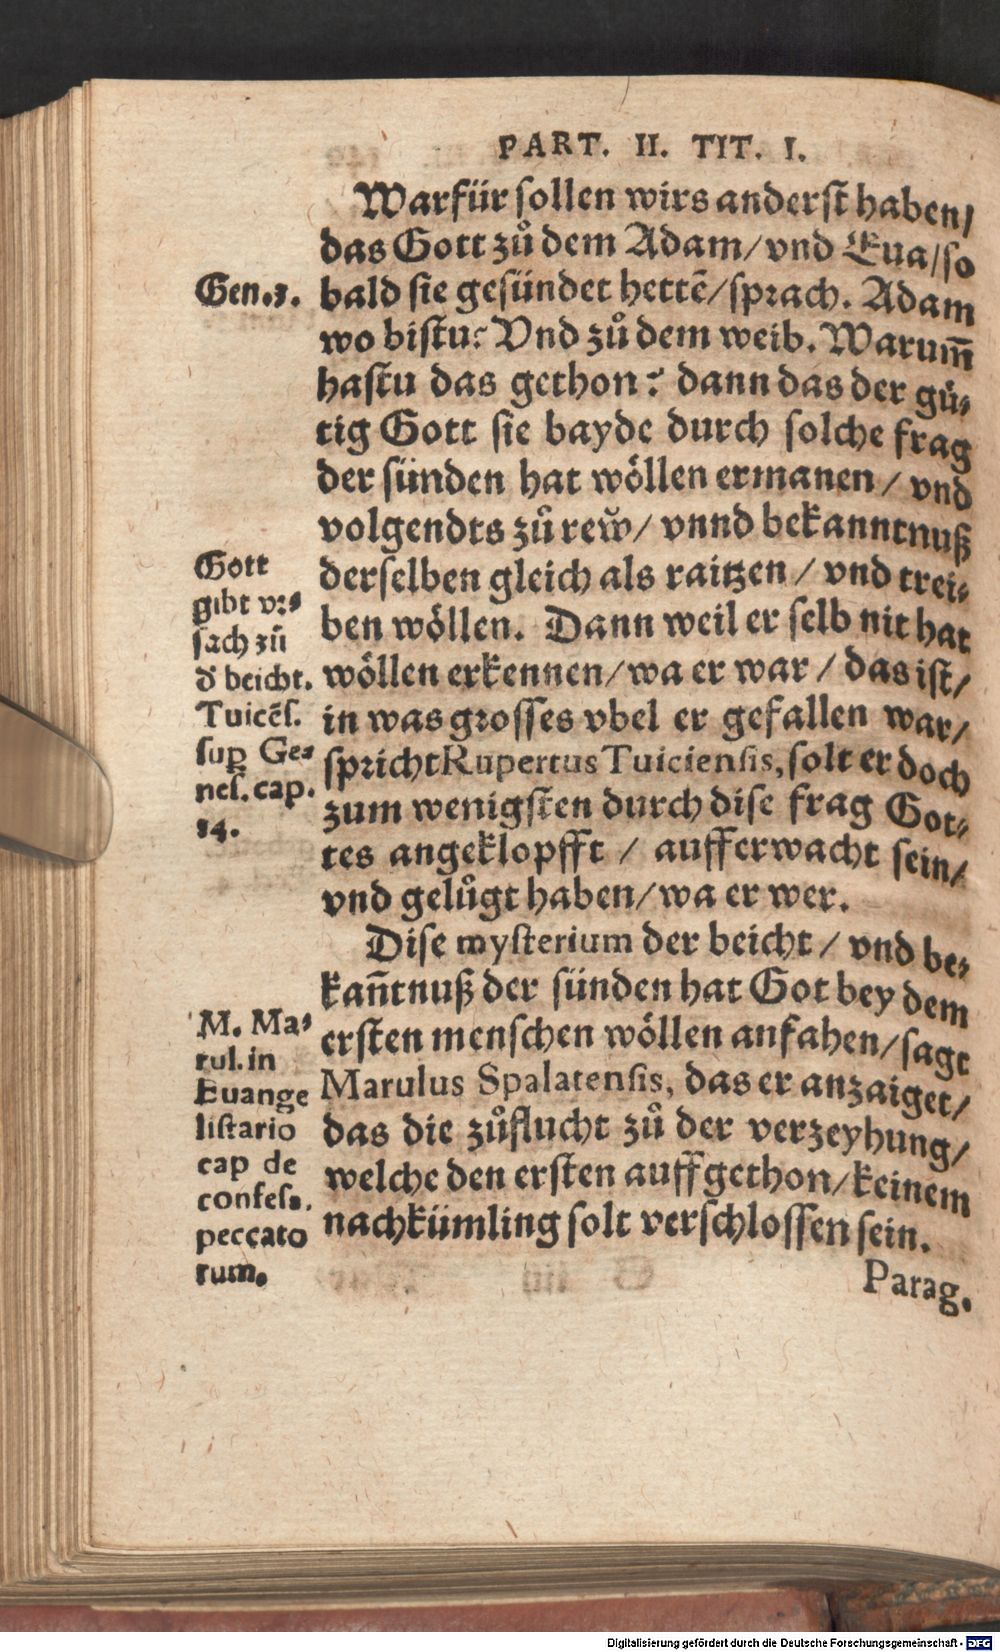 PART. II. TIT. I.
Warfür sollen wirs anderst haben/
das Gott zů dem Adam/ vnd Eua/ so
bald sie gesündet hettē/ sprach. Adam
wo bistu? Vnd zů dem weib. Warum̄
hastu das gethon? dann das der gü-
tig Gott sie bayde durch solche frag
der sünden hat wöllen ermanen / vnd
volgendts zů rew̆/ vnnd bekanntnuß
derselben gleich als raitzen / vnd trei-
ben wöllen. Dann weil er selb nit hat
wöllen erkennen/ wa er war / das ist/
in was grosses vbel er gefallen war/
spricht Rupertus Tuiciensis, solt er doch
zum wenigsten durch dise frag Got-
tes angeklopfft / aufferwacht sein/
vnd gelůgt haben/ wa er wer.
Dise mysterium der beicht / vnd be-
kan̄tnuß der sünden hat Got bey dem
ersten menschen wöllen anfahen/ sagt
Marulus Spalatensis, das er anzaiget/
das die zůflucht zů der verzeyhung/
welche den ersten auffgethon/ keinem
nachkümling solt verschlossen sein.
Parag.
Gen.3.
Gott
gibt vr-
sach zů
d' beicht.
Tuicēs.
sup̱ Ge-
nes. cap.
14.
M. Ma-
rul. in
Euange
listario
cap de
confess.
peccato
rum.
Digitalisierung gefördert durch die Deutsche Forschungsgemeinschaft - DFG